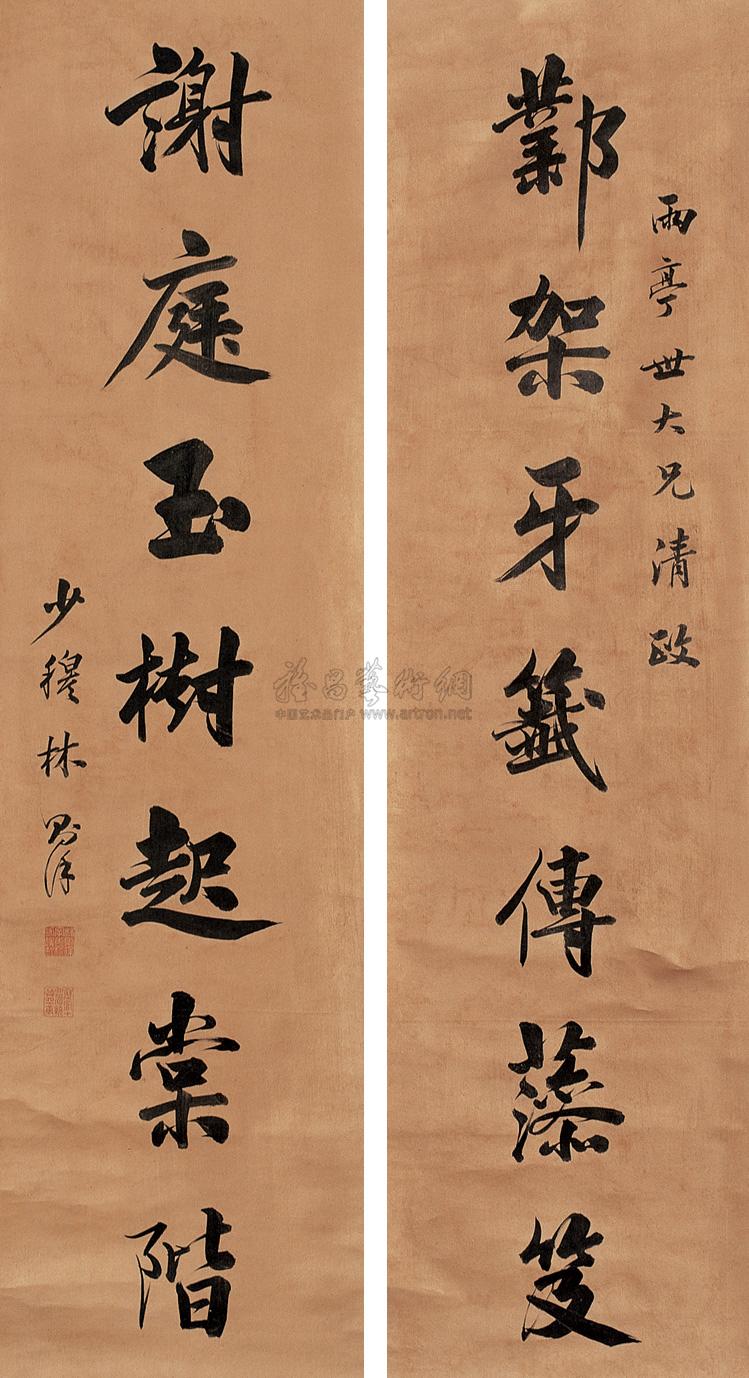 雨亭世大兄清政
鄴架牙籤傳笈
謝庭玉樹起棠階
少穆林則徐
雅昌藝術網
中国艺术品门户 www.artron.net